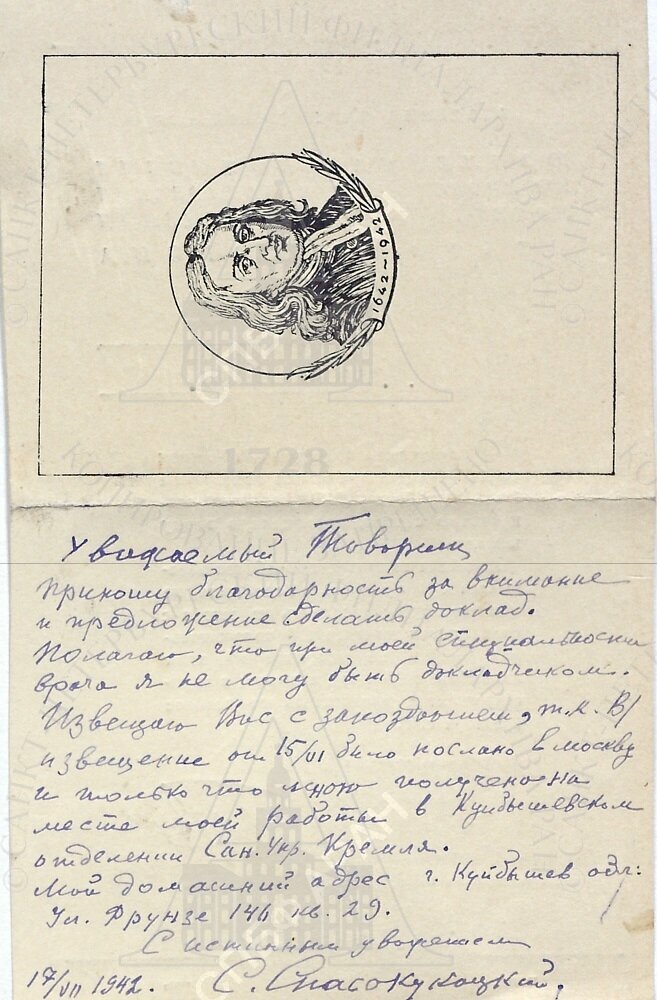 1642–1942
Уважаемый Товарищ
приношу благодарность за внимание
и предложение сделать доклад.
Полагаю, что при моей специальности
врача я не могу быть докладчиком.
Извещаю Вас с запозданием, т.к. В/
извещение от 15/VI было послано в Москву
и только что мною получено на
месте моей работы в Куйбышевском
отделении Сан. Упр. Кремля.
Мой домашний адрес г. Куйбышев обл:
Ул. Фрунзе кв. 29.
С истинным уважением
17/VII 1942. С. Спасокукоцкий.
1728